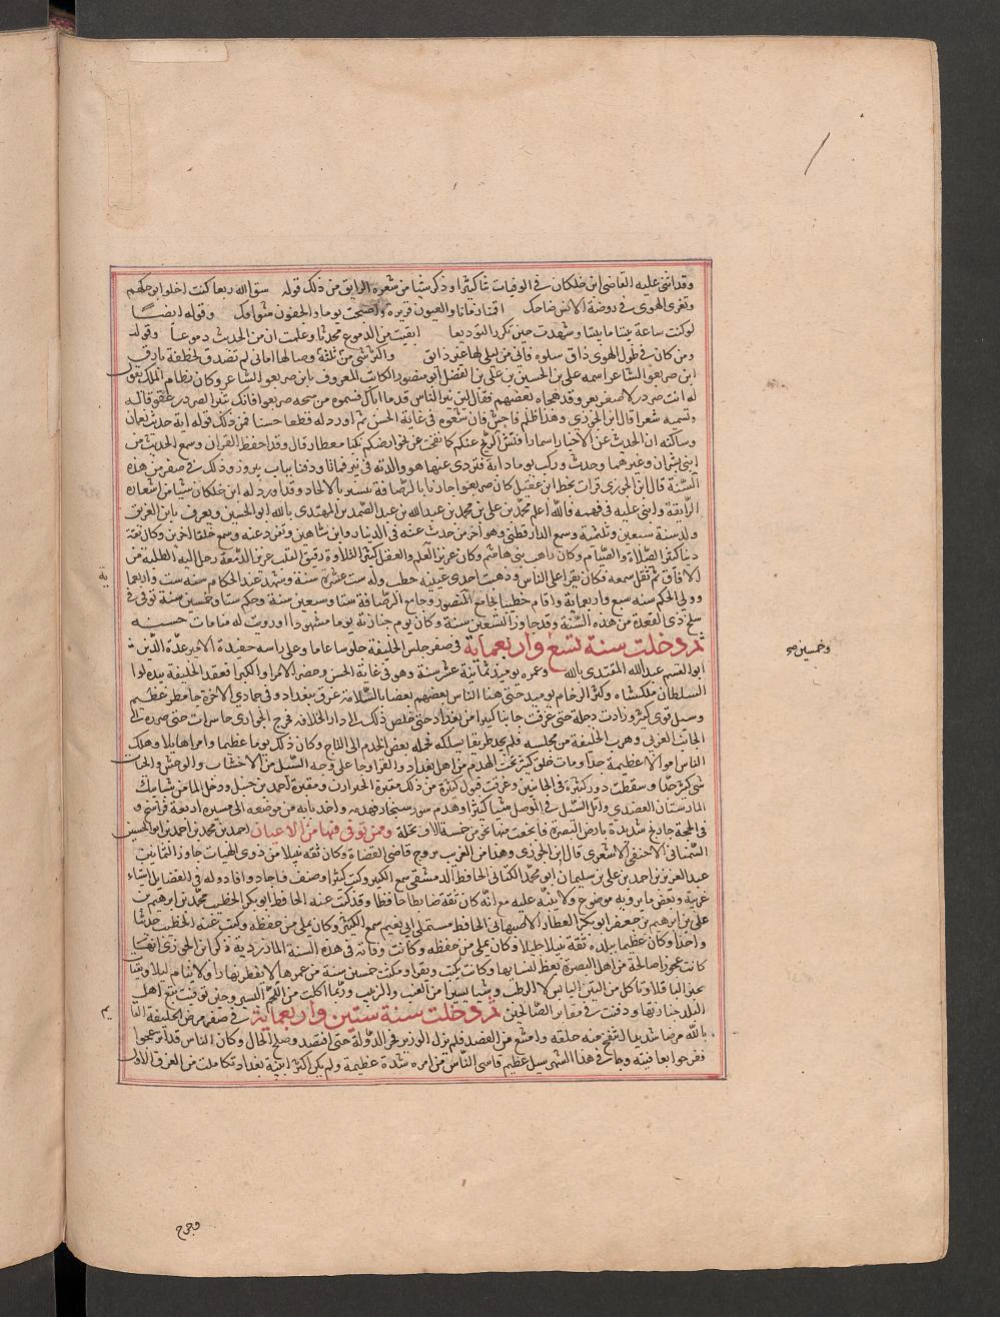 وقد اثنى عليه القاضي ابن خلكان في الوفيات ثناء كثيرا وذكر شيئا من شعره الرايق من ذلك قوله سقى الله ربعا كنت اخلو ابوجهكم
وثغر الهوى في روضة الانس ضاحك اقمنا زمانا والعيون قريرة واصبحت يوما والجفون سوافك وقوله ايضا
لو كنت ساعة بيننا ما بيننا وشهدت حين نكرر التوديعا ايقنت من الدموع محدثا وعلمت ان من الحديث دموعا وقوله
ومن كان في طول الهوى ذاق سلوه فاني من ليلى لها غير ذائق واكثر شي من نلته وصالها اماني لم تصدق كخطفة بارق
ابن صربعر الشاعر اسمه علي بن الحسين بن علي بن الفضل ابو منصور الكاتب المعروف بابن صربعر الشاعر وكان نظام الملك يقول
له انت صردر لا صربعر وقد هجاه بعضهم فقال لئن نبز الناس قدما اباك فسموه من شحه صربعرا فانك تنثر الصردر عقوقا له
وتسميه شعرا قال ابن الجوزي وهذا ظلم فاحش فان شعره في غاية الحسن ثم اورد له قطعا حسنا فمن ذلك قوله ايه حديث نعمان
وساكنه ان الحديث عن الاحباب اسمار افتش الريح عنكم كلما نفحت من نحو ارضكم نكبا معطار قال وقد حفظ القران وسمع الحديث من
ابن بشران وغيره وحدث وركب يوما دابة فتردى عنها هو والدته في بير فماتا ودفنا بباب بيروز وذلك في صفر من هذه
السنة قال ابن الجوزي قرات بخط ابن عقيل كان صربعر جارنا بالرصافة ينسب بالالحاد وقد اورد له ابن خلكان شيئا من اشعاره
الرايقة واثنى عليه في فهمه فالله اعلم محمد بن علي بن محمد بن عبد الله بن عبد الصمد بن المهتدي بالله ابو الحسين ويعرف بابن الغريق
ولد سنة سبعين وثلثمية وسمع الدارقطني وهو اخر من حدث عنه في الدنيا وابن شاهين وتفرد عنه وسمع خلقا اخرين وكان ثقة
دينا كثير الصلاة والصيام وكان راهب بني هاشم وكان غزير العلم والعقل كثير التلاوة رقيق القلب غزير الدمعة رحل اليه الطلبة من
الافاق ثم ثقل سمعه فكان يقرا على الناس وذهبت احدى عينيه خطب وله ست عشرة سنة وشهد عند الحكام سنه ست واربعما
وولي الحكم سنه سبع واربعماية واقام خطيبا بجامع المنصور وجامع الرصافة ستا وسبعين سنة وحكم ستا وخمسين سنة توفي في
سلخ ذي القعدة من هذه السنة وقد جاوز التسعين سنة وكان يوم جنازته يوما مشهودا وروئت له منامات حسنه
ثم دخلت سنة تسع واربعماية في صفر جلس الخليفة جلوسا عاما وعلى راسه حفيده الامير عدة الدين
وخمسين صح
ابو القسم عبد الله المقتدي بالله وعمره يوميذ ثمانية عشر سنة وهو في غاية الحسن وحضر الامرا والكبرا فعقد الخليفة بيده لوا
السلطان ملكشاه وكثر الزحام يوميذ حتى هنا الناس بعضهم بعضا بالسلامة غرق بغداد وفي جمادى الاخرة جا مطر عظيم
وسيل قوي كثير وزادت دجلة حتى غرقت جانبا كبيرا من بغداد حتى خلص ذلك الى دار الخلافة فخرج الجواري حاسرات حتى صرن الى
الجانب الغربي وهرب الخليفة من مجلسه فلم يجد طريقا يسلكه فحمله بعض الخدم الى التاج وكان ذلك يوما عظيما وامرا هايلا وهلك
الناس اموالا عظيمة جدا ومات خلق كثير تحت الهدم من اهل بغداد والغربا وجا على وجه السيل من الاخشاب والوحش والحيات
شي كثير جدا وسقطت دور كثيرة في الجانبين وغرقت قبور كثيرة من ذلك مقبرة الخيزران ومقبرة احمد بن حنبل ودخل الما من شبابيك
المارستان العضدي واتلف السيل في الموصل شيئا كثيرا وهدم سور سنجار فهدمه واخذ بابه من موضعه الى مسيرة اربعة فراسخ و
في الحجة جا ريح شديدة بارض البصرة فانجعفت منها نحو من خمسة الاف نخلة وممن توفي فيها من الاعيان احمد بن محمد بن احمد بن ابو الحسين
السمناني الحنفي الاشعري قال ابن الجوزي وهذا من الغريب تزوج قاضي القضاة وكان ثقه نبيلا من ذوي الهيات جاوز الثمانين
عبد العزيز بن احمد بن علي بن سليمان ابو محمد الكتاني الحافظ الدمشقي سمع الكثير وكتب كثيرا وصنف فاجاد وافاد وله في الفضايل اشياء
غريبة وبعض ما يرويه موضوع ولا ينبه عليه مع انه كان ثقة ضابطا حافظا وقد كتب عنه الحافظ ابو بكر الخطيب محمد بن ابرهيم بن
علي بن ابرهيم بن جعفر ابو بكر العطار الاصبهاني الحافظ مستملي ابي نعيم سمع الكثير وكان يملي من حفظه وكتب عنه الخطيب حديثا
واحدا وكان عظيما ببلده ثقة نبيلا جليلا وكان يملي من حفظه وكانت وفاته في هذه السنة الماوردية ذكر ابن الجوزي انها
كانت عجوزا صالحة من اهل البصرة تعظ النسا بها وكانت تكتب وتقرا ومكثت خمسين سنة من عمرها لا تفطر نهارا ولا تنام ليلا وتقتات
بخبز الباقلا وتاكل من التين اليابس لا الرطب وشيئا يسيرا من العنب والزبيب وربما اكلت من اللحم اليسير وحين توفيت تبع اهل
البلد جنازتها ودفنت في مقابر الصالحين ثم دخلت سنة ستين واربعماية في صفر مرض الخليفة القا
بالله مرضا شديدا انتفخ منه حلقه وامتنع من الفصد فلم يزل الوزير فخر الدولة حتى افتصد وصلح الحال وكان الناس قد انزعجوا
ففرحوا بعافيته وجا في هذا الشهر سيل عظيم قاسى الناس من امره شدة عظيمة ولم يكن اكثر ابنية بغداد تكاملت من الغرق الاول
فخرج